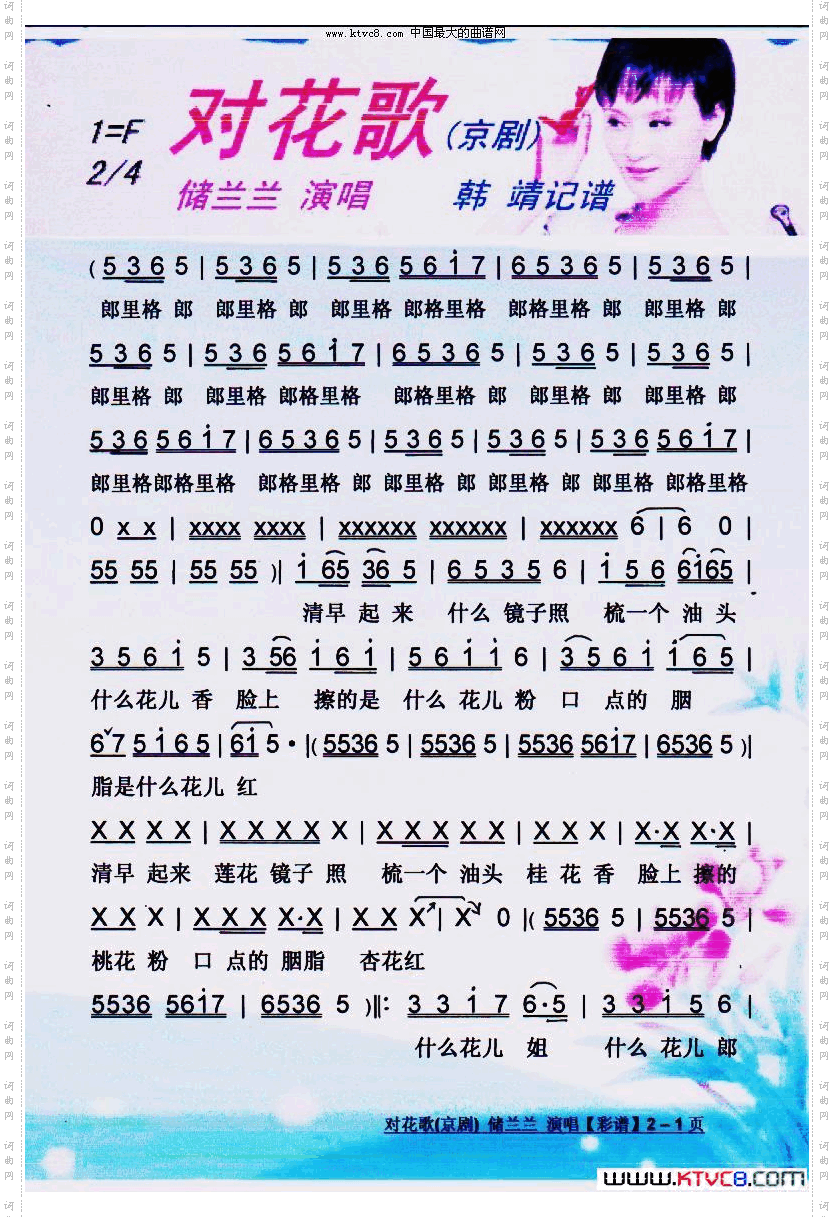 www.ktvc8.com 中国最大的曲谱网
对花歌(京剧)
1=F
2/4
储兰兰 演唱 韩 靖记谱
( 5 3 6 5 | 5 3 6 5 | 5 3 6 5 6 i 7 | 6 5 3 6 5 | 5 3 6 5 |
郎里格 郎 郎里格 郎 郎里格 郎格里格 郎格里格 郎 郎里格 郎
5 3 6 5 | 5 3 6 5 6 i 7 | 6 5 3 6 5 | 5 3 6 5 | 5 3 6 5 |
郎里格 郎 郎里格 郎格里格 郎格里格 郎 郎里格 郎 郎里格 郎
5 3 6 5 6 i 7 | 6 5 3 6 5 | 5 3 6 5 | 5 3 6 5 | 5 3 6 5 6 i 7 |
郎里格郎格里格 郎格里格 郎 郎里格 郎 郎里格 郎 郎里格 郎格里格
0 x x | xxxx xxxx | xxxxxx xxxxxx | xxxxxx 6 | 6 0 |
55 55 | 55 55 )| i 65 36 5 | 6 5 3 5 6 | i 5 6 6i65 |
清早 起 来 什么 镜子照 梳一个 油 头
3 5 6 i 5 | 3 56 i 6 i | 5 6 i i 6 | 3 5 6 i i 6 5 |
什么花儿 香 脸上 擦的是 什么 花儿 粉 口 点的 胭
6 7 5 i 6 5 | 6 i 5 · |( 5536 5 | 5536 5 | 5536 56i7 | 6536 5 )|
脂是什么花儿 红
X X X X | X X X X X | X X X X X | X X X | X·X X·X |
清早 起来 莲花 镜子 照 梳一个 油头 桂 花 香 脸上 擦的
X X X | X X X X·X | X X X | X 0 |( 5536 5 | 5536 5 |
桃花 粉 口 点的 胭脂 杏花红
5536 56i7 | 6536 5 )‖: 3 3 i 7 6·5 | 3 3 i 5 6 |
什么花儿 姐 什么 花儿 郎
对花歌(京剧) 储兰兰 演唱【彩谱】2-1页
www.KTVC8.com
词曲网